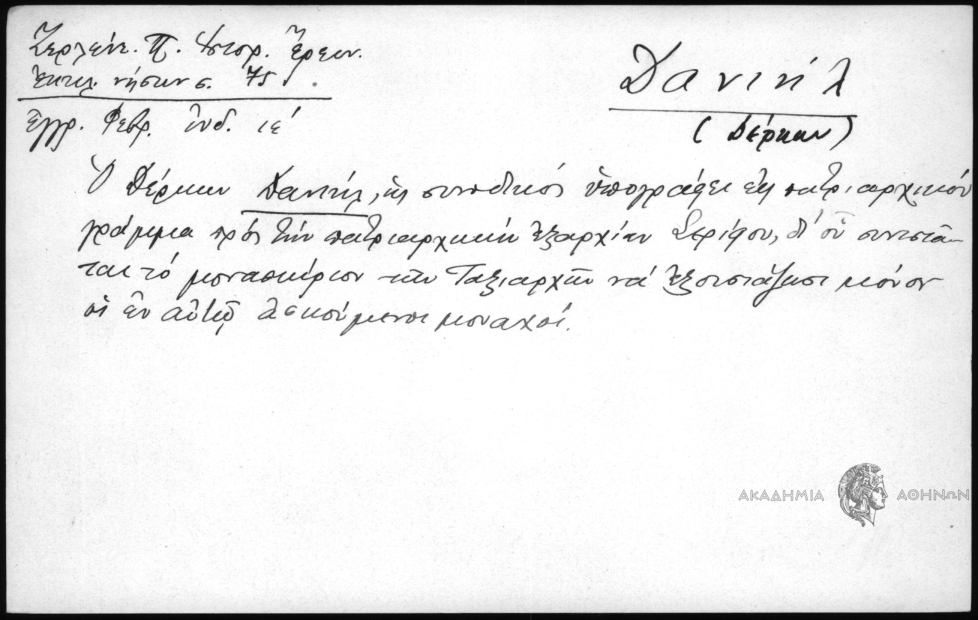 Ζερλέντ. Π. Ἱστορ. Ἔρευν.
Ἐκκλ. νήσων σ. 75.
Ἔγγρ. Φεβρ. ἰνδ. ιέ
Δανιήλ
(Δέρκων)
Ὁ Δέρκων Δανιήλ, ὡς συνοδικός ὑπογράφει εἰς πατριαρχικόν
γράμμα πρός τήν πατριαρχικήν ἐξαρχίαν Σερίφου, δι' οὗ συνιστᾶ-
ται τό μοναστήριον τῶν Ταξιαρχῶν νά ἐξουσιάζωσι μόνον
οἱ ἐν αὐτῷ ἀσκούμενοι μοναχοί.
ΑΚΑΔΗΜΙΑ ΑΘΗΝΩΝ